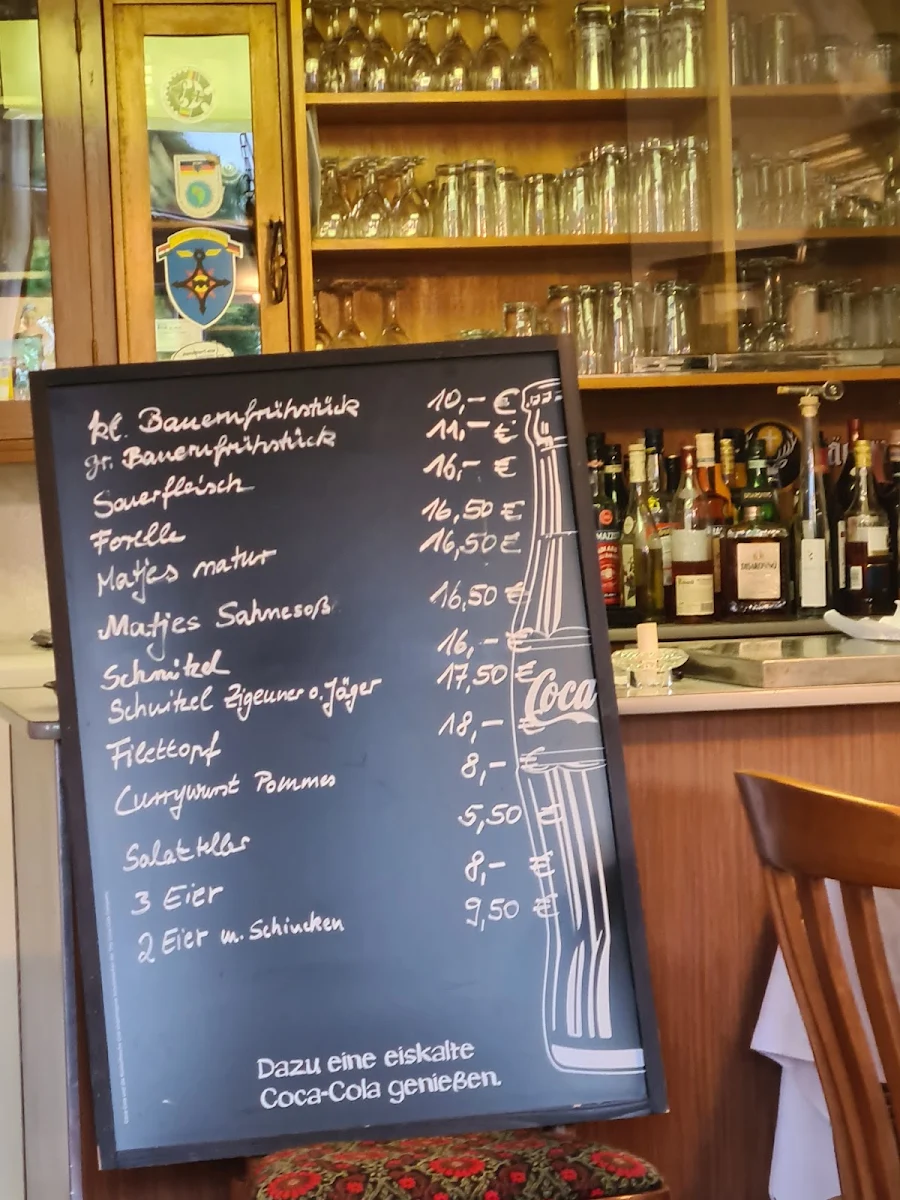 kl. Bauernfrühstück 10,- €
gr. Bauernfrühstück 11,- €
Sauerfleisch 16,- €
Forelle 16,50 €
Matjes natur 16,50 €
Matjes Sahnesoß 16,50 €
Schnitzel 16,- €
Schnitzel Zigeuner o. Jäger 17,50 €
Filettopf 18,- €
Currywurst Pommes 8,- €
Salatteller 5,50 €
3 Eier 8,- €
2 Eier m. Schincken 9,50 €
Coca
Dazu eine eiskalte
Coca-Cola genießen.
DISARONNO